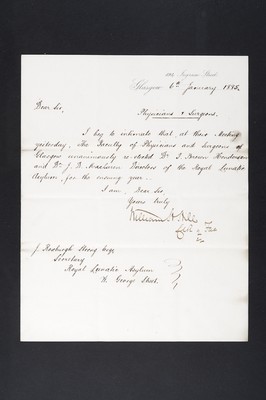 Glasgow 6th January 1885.
Dear Sir,
Physicians & Surgeons.
I beg to intimate that at their Meeting
yesterday, The Faculty of Physicians and Surgeons of
Glasgow unanimously re-elected Dr. J. Brown Henderson
and Dr. J. D. Maclaren Directors of the Royal Lunatic
Asylum, for the ensuing year.
I am Dear Sir,
Yours truly
William H. Hill
J. Strong Esqr
Secretary
Royal Lunatic Asylum
St. George Street.